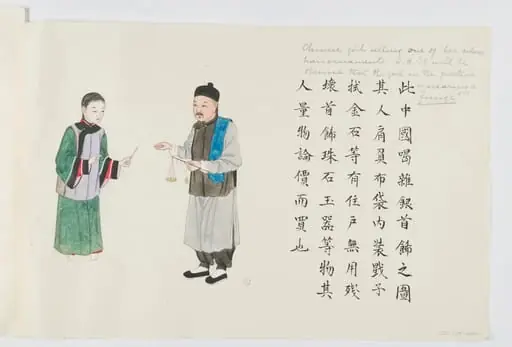 Chinese girl selling one of her silver
hair ornaments. N.B. It will be
observed that the girl in the picture
is wearing a
"fringe"
此中國喝雜銀首飾之圖
其人肩負布袋內裝戥子
拭金石等有住戶無用殘
壞首飾珠石玉器等物其
人量物論價而買也